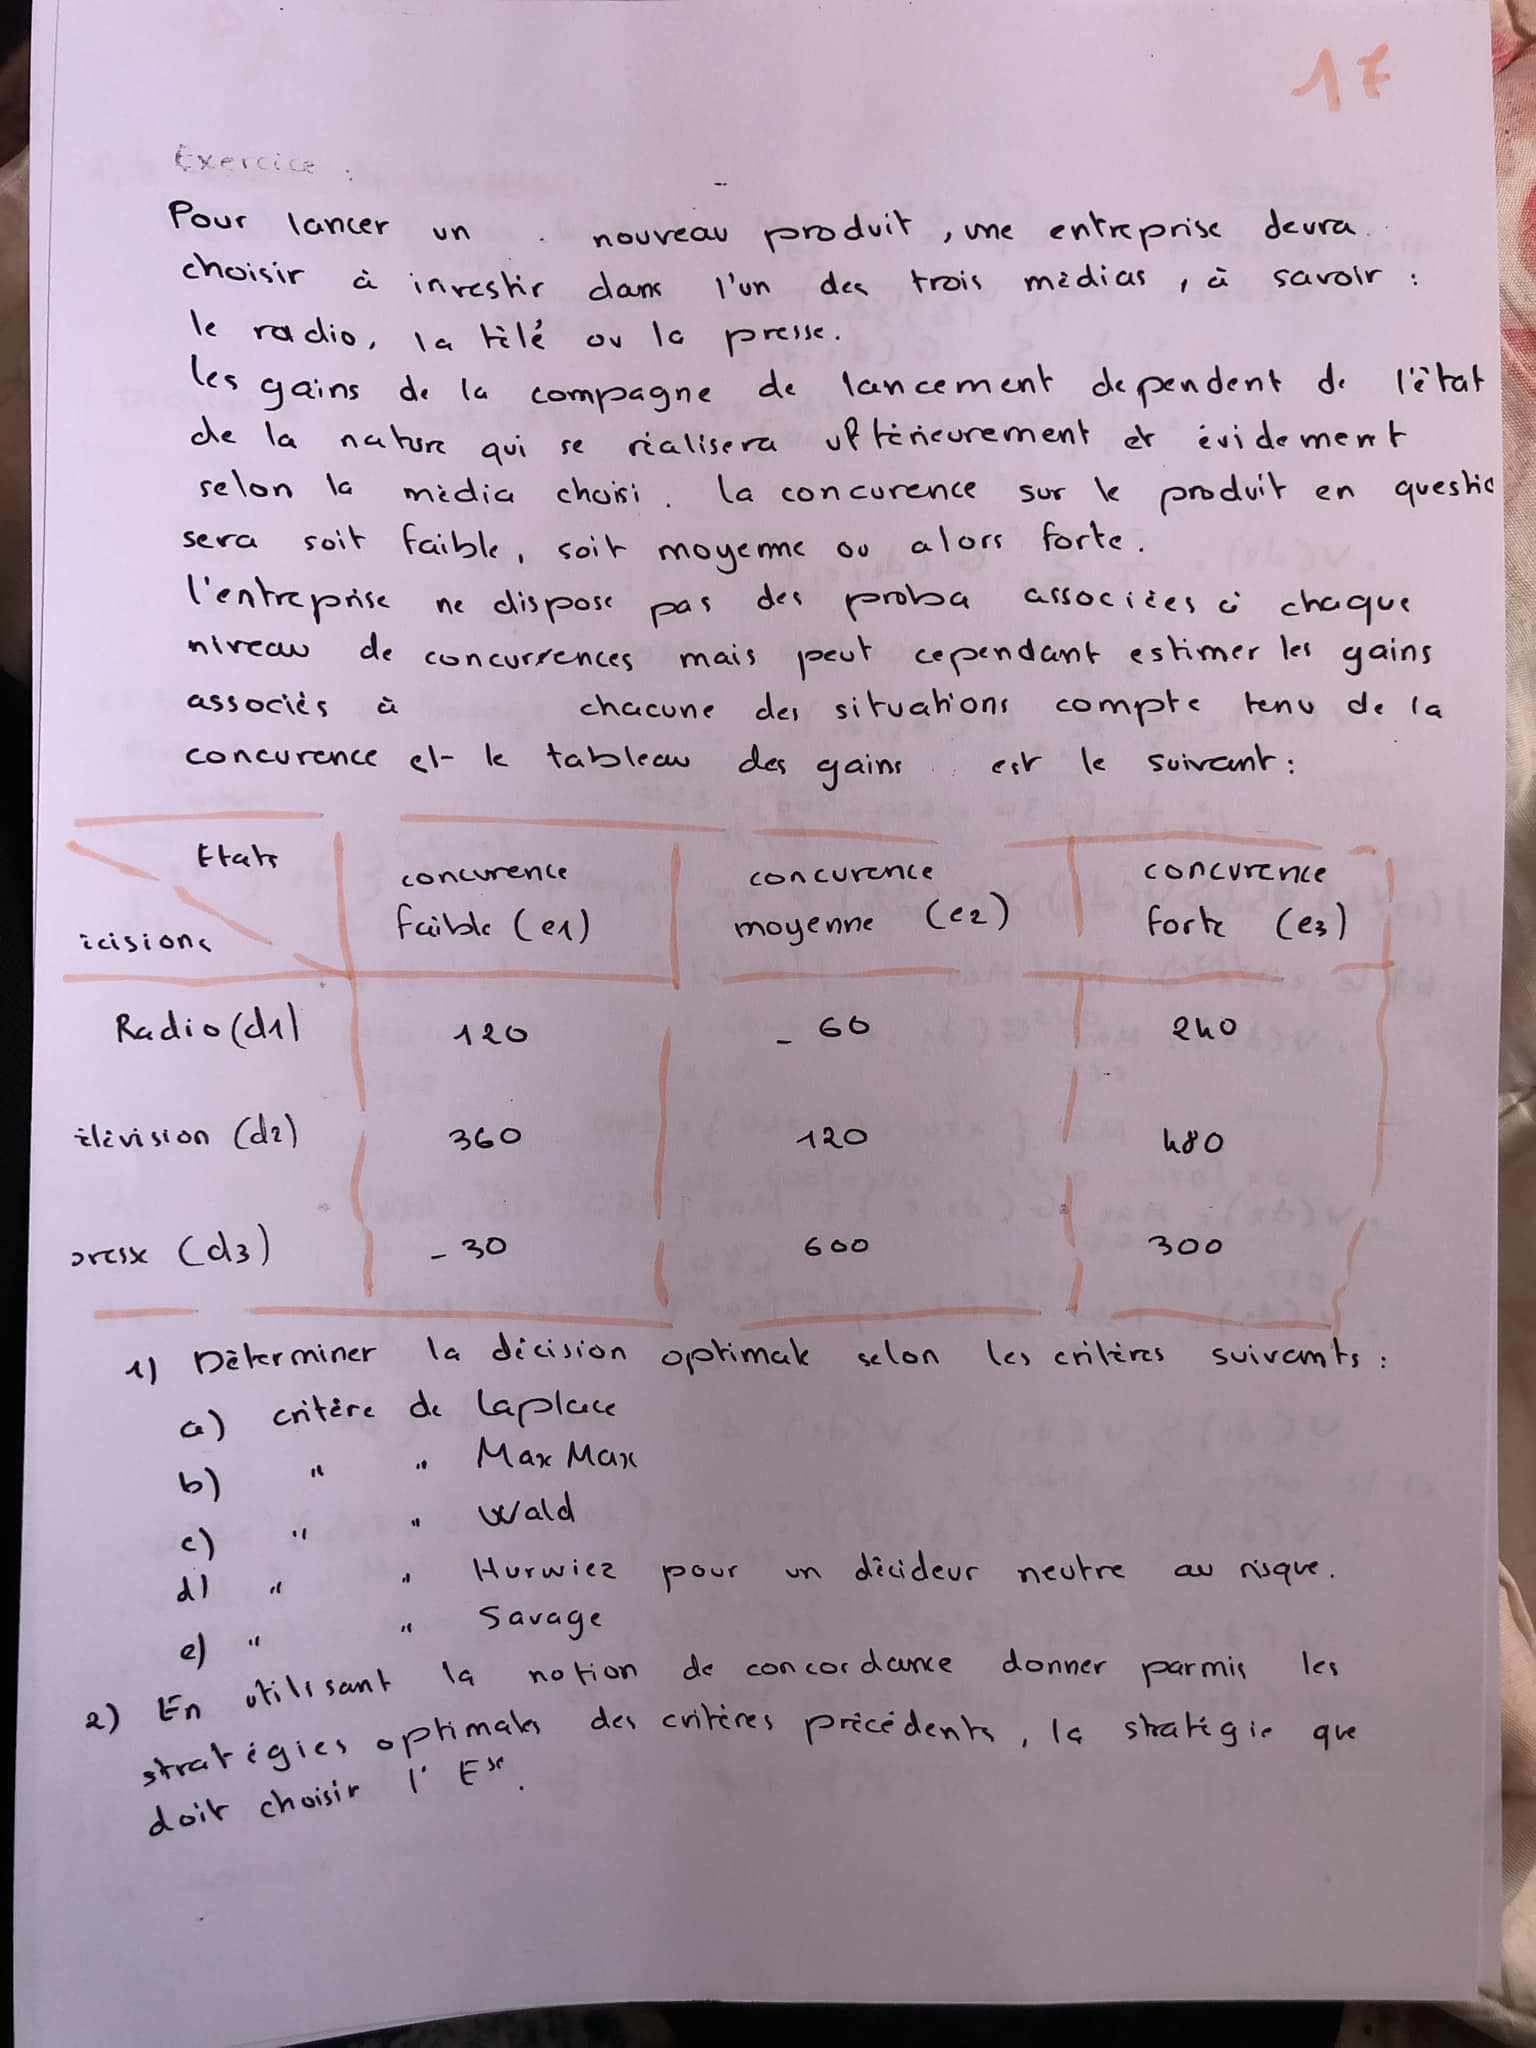 17
Exercice :
Pour lancer un nouveau produit, une entreprise devra
choisir à investir dans l'un des trois médias, à savoir :
le radio, la télé ou la presse.
les gains de la compagne de lancement dependent de l'état
de la nature qui se réalisera ultérieurement et évidement
selon la média choisi. la concurence sur le produit en questio
sera soit faible, soit moyenne ou alors forte.
l'entreprise ne dispose pas des proba associées à chaque
niveau de concurrences mais peut cependant estimer les gains
associés à chacune des situations compte tenu de la
concurence et le tableau des gains est le suivant :
Etats
concurence faible (e1)
concurence moyenne (e2)
concurence forte (e3)
écisions
Radio (d1) 120 - 60 240
élévision (d2) 360 120 480
presse (d3) - 30 600 300
1) Déterminer la décision optimale selon les critères suivants :
a) critère de Laplace
b) " " Max Max
c) " " Wald
d) " " Hurwiez pour un décideur neutre au risque.
e) " " Savage
2) En utilisant la notion de concordance donner parmis les
stratégies optimales des critères précédents, la stratégie que
doit choisir l'Ese.